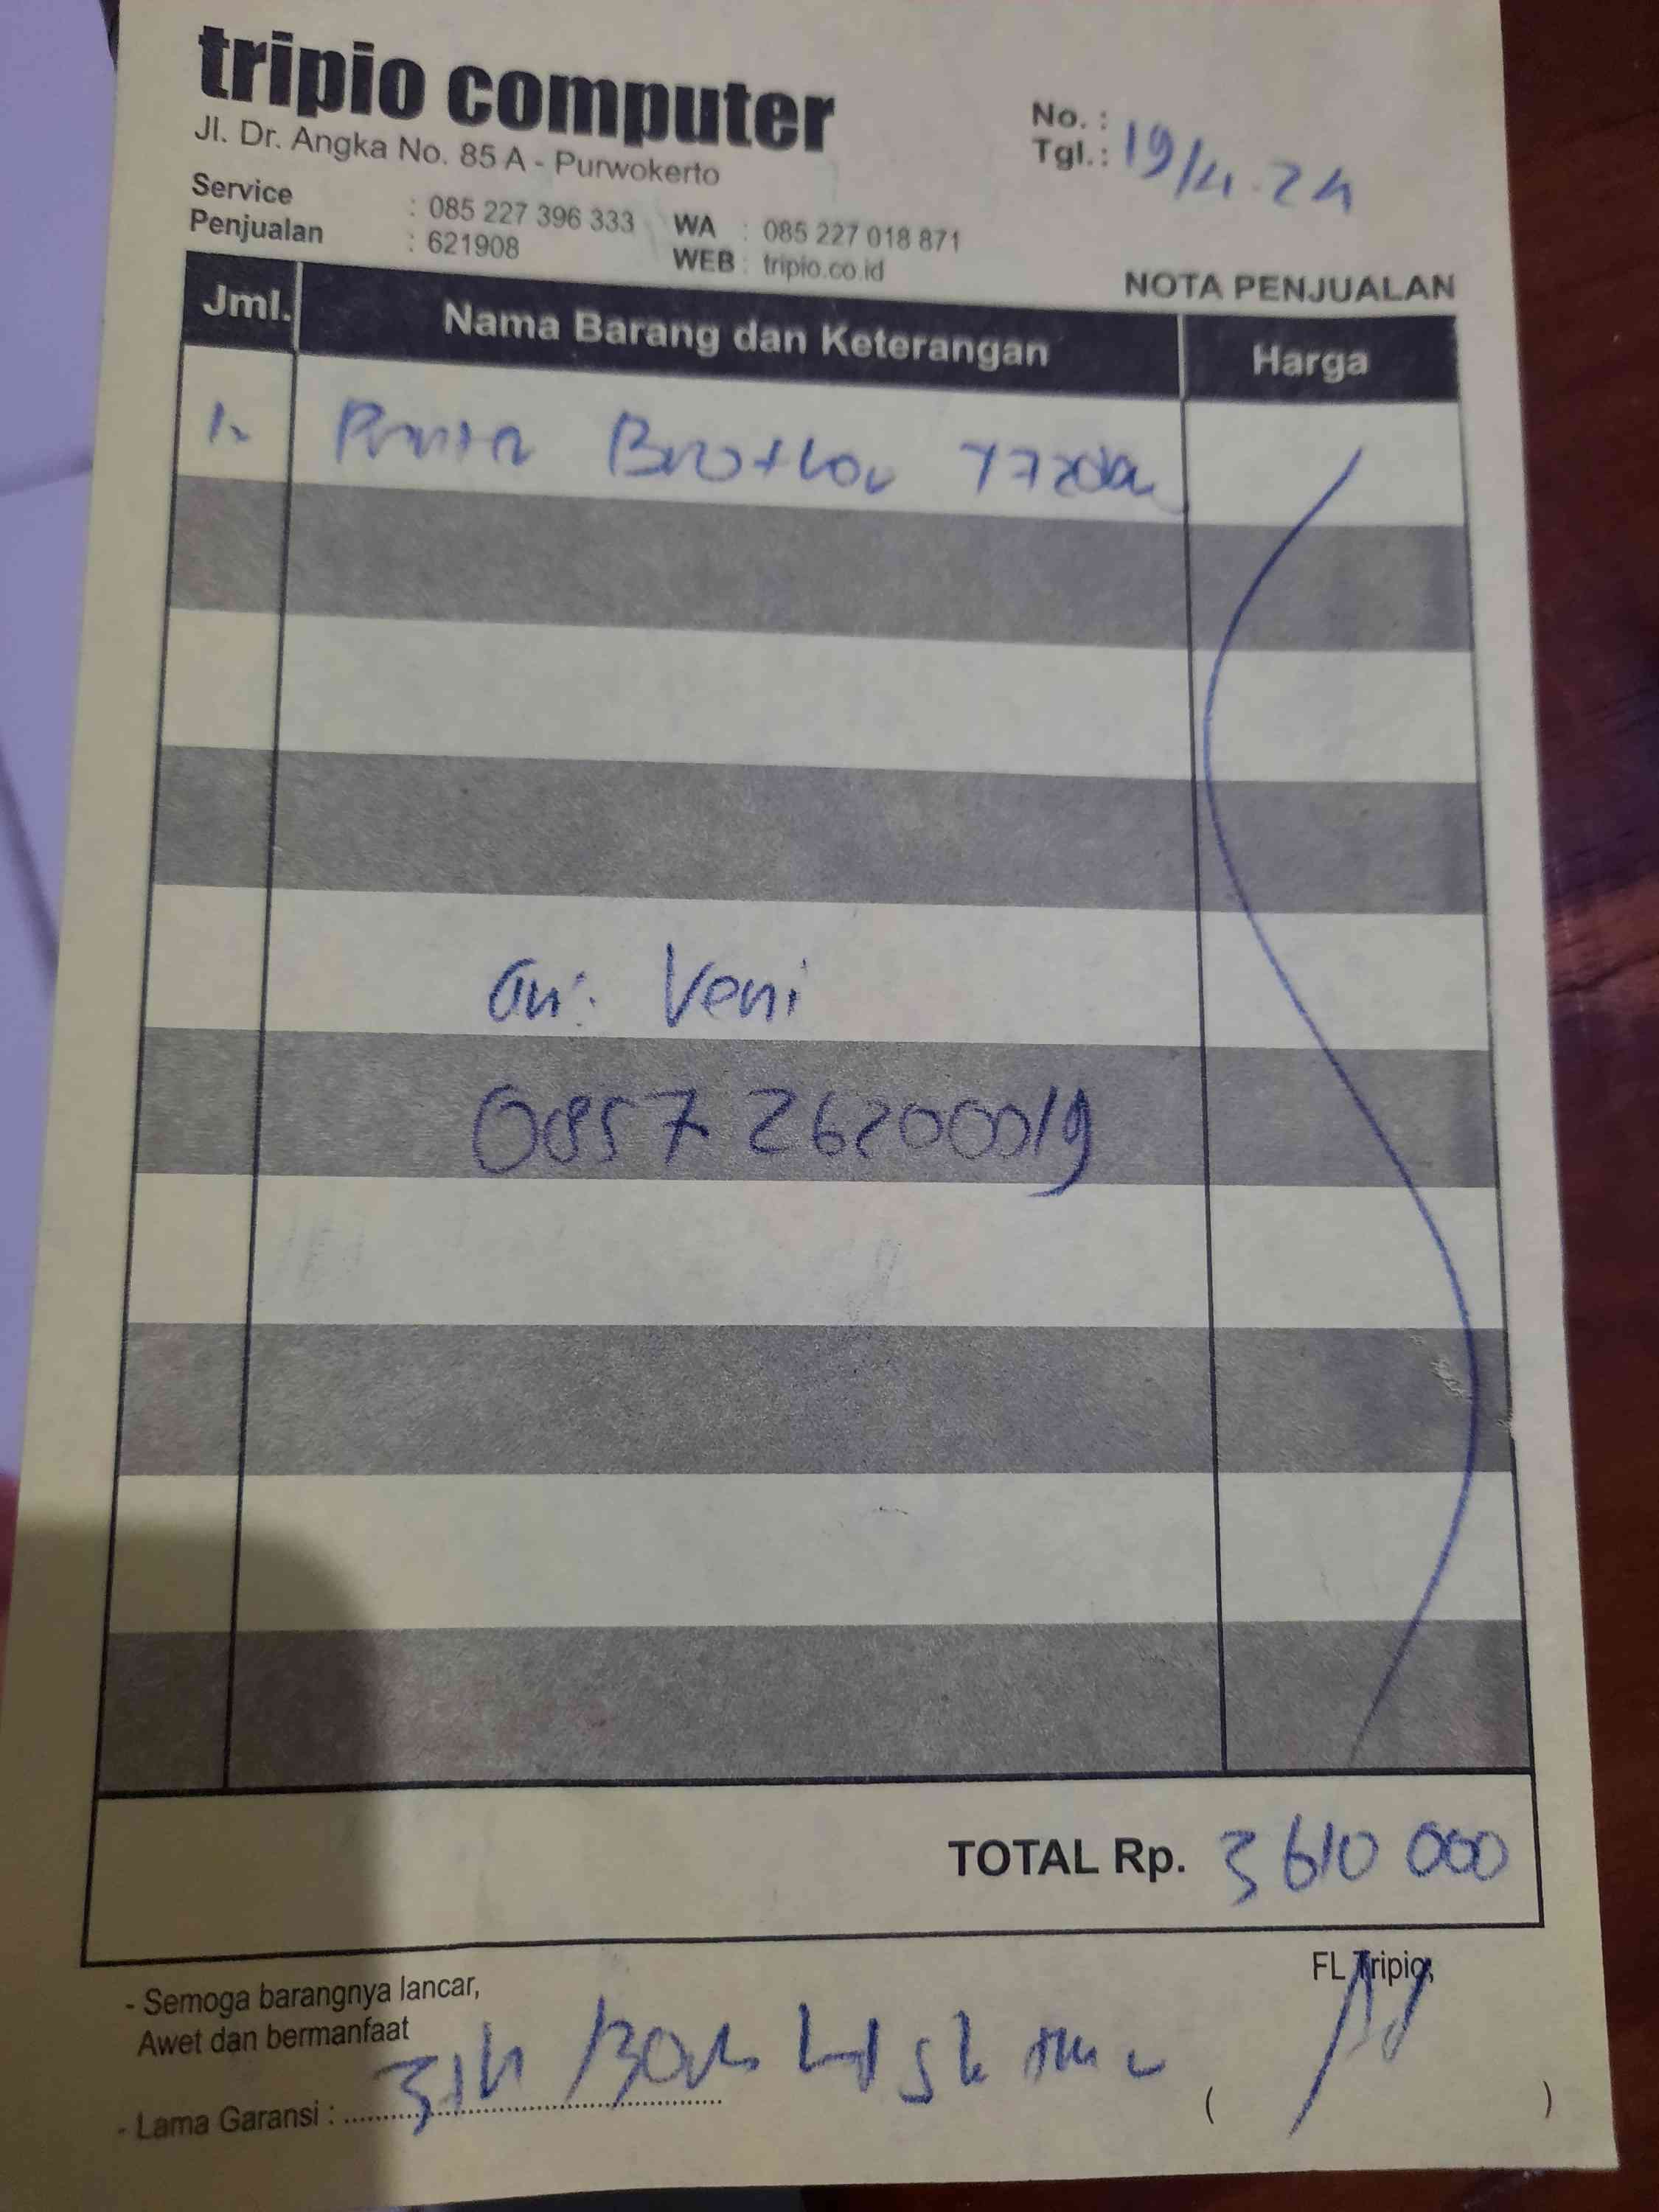 tripio computer
Jl. Dr. Angka No. 85 A - Purwokerto
Service : 085 227 396 333 WA : 085 227 018 871
Penjualan : 621908 WEB : tripio.co.id
No. :
Tgl. : 19/4.24
NOTA PENJUALAN
Jml. Nama Barang dan Keterangan Harga
1. Printer Brother
an: Veni
0857 26200019
TOTAL Rp. 3 610 000
- Semoga barangnya lancar,
Awet dan bermanfaat
FL Tripio,
- Lama Garansi : 3th
( )